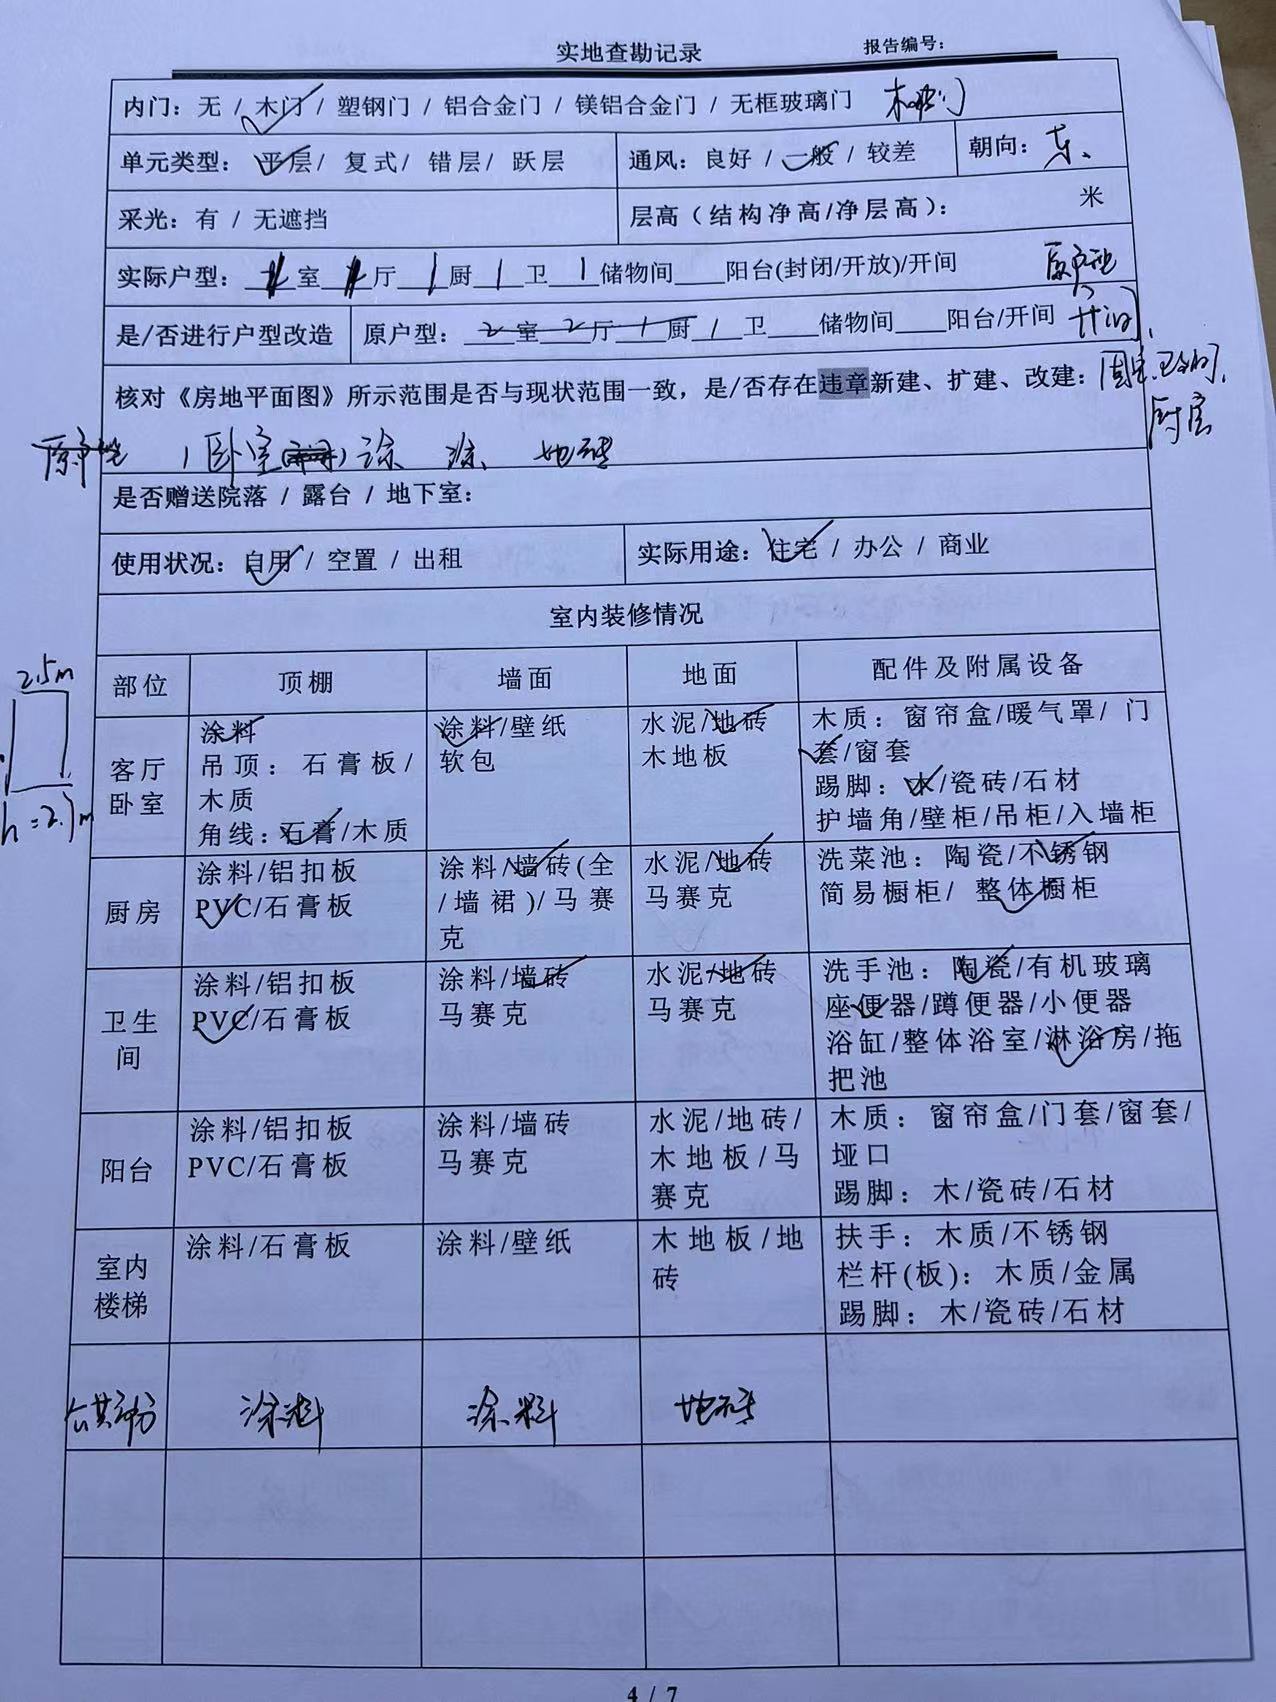 实地查勘记录 报告编号：
内门：无 / 木门 / 塑钢门 / 铝合金门 / 镁铝合金门 / 无框玻璃门
单元类型：平层/ 复式/ 错层/ 跃层 通风：良好 / 一般 / 较差 朝向：东、
采光：有 / 无遮挡 层高（结构净高/净层高）： 米
实际户型：室 厅 1 厨 1 卫 1 储物间____阳台(封闭/开放)/开间 原户型
是/否进行户型改造 原户型：2 室 2 厅 1 厨 1 卫____储物间____阳台/开间 为开间,
核对《房地平面图》所示范围是否与现状范围一致，是/否存在违章新建、扩建、改建：
厨房
原户型 1卧室 涂 涂 地砖
是否赠送院落 / 露台 / 地下室：
使用状况：自用 / 空置 / 出租 实际用途：住宅 / 办公 / 商业
室内装修情况
2.5m
h=2.7m
部位 顶棚 墙面 地面 配件及附属设备
客厅
卧室
涂料
吊顶：石膏板/
木质
角线：石膏/木质
涂料/壁纸
软包
水泥/地砖
木地板
木质：窗帘盒/暖气罩/ 门
套/窗套
踢脚：木/瓷砖/石材
护墙角/壁柜/吊柜/入墙柜
厨房
涂料/铝扣板
PVC/石膏板
涂料/墙砖(全
/墙裙)/马赛
克
水泥/地砖
马赛克
洗菜池：陶瓷/不锈钢
简易橱柜/ 整体橱柜
卫生
间
涂料/铝扣板
PVC/石膏板
涂料/墙砖
马赛克
水泥/地砖
马赛克
洗手池：陶瓷/有机玻璃
座便器/蹲便器/小便器
浴缸/整体浴室/淋浴房/拖
把池
阳台
涂料/铝扣板
PVC/石膏板
涂料/墙砖
马赛克
水泥/地砖/
木地板/马
赛克
木质：窗帘盒/门套/窗套/
垭口
踢脚：木/瓷砖/石材
室内
楼梯
涂料/石膏板
涂料/壁纸
木地板/地
砖
扶手：木质/不锈钢
栏杆(板)：木质/金属
踢脚：木/瓷砖/石材
公共部分 涂料 涂料 地砖
4 / 7